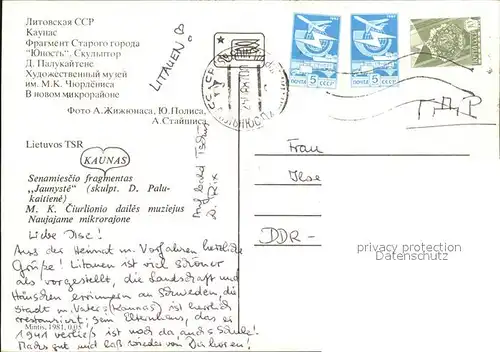 Литовская ССР
Каунас
Фрагмент Старого города
"Юность". Скульптор
Д. Палукайтене
Художественный музей
им. М.К. Чюрлёниса
В новом микрорайоне
Фото А.Жижюнаса, Ю.Полиса,
А.Стайшиса
LITAUEN
Lietuvos TSR
KAUNAS
Senamiesčio fragmentas
„Jaunystė" (skulpt. D. Palu-
kaitienė)
M. K. Čiurlionio dailės muziejus
Naujajame mikrorajone
Liebe Ilse!
Aus der Heimat m. Vorfahren herzliche
Grüße! Litauen ist viel schöner
als vorgestellt, die Landschaft und
Häuschen erinnern an Schweden, die
Stadt m. Vaters (Kaunas) ist herrlich
restauriert. Sein Elternhaus, das er
1941 verließ ist noch da auch s. Schule!
Machs gut und laß wieder von Dir hören!
Auf bald Tschüß
D. Rix
Mintis, 1981, 0,05
ПОЧТА 5 СССР
ПОЧТА 5 СССР
ГДР
Frau
Ilse
DDR-
privacy protection
watermark